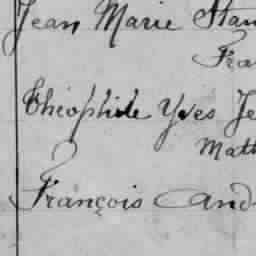 Jean Marie Stan
Fra
Théophile Yves Je
Matt
François And